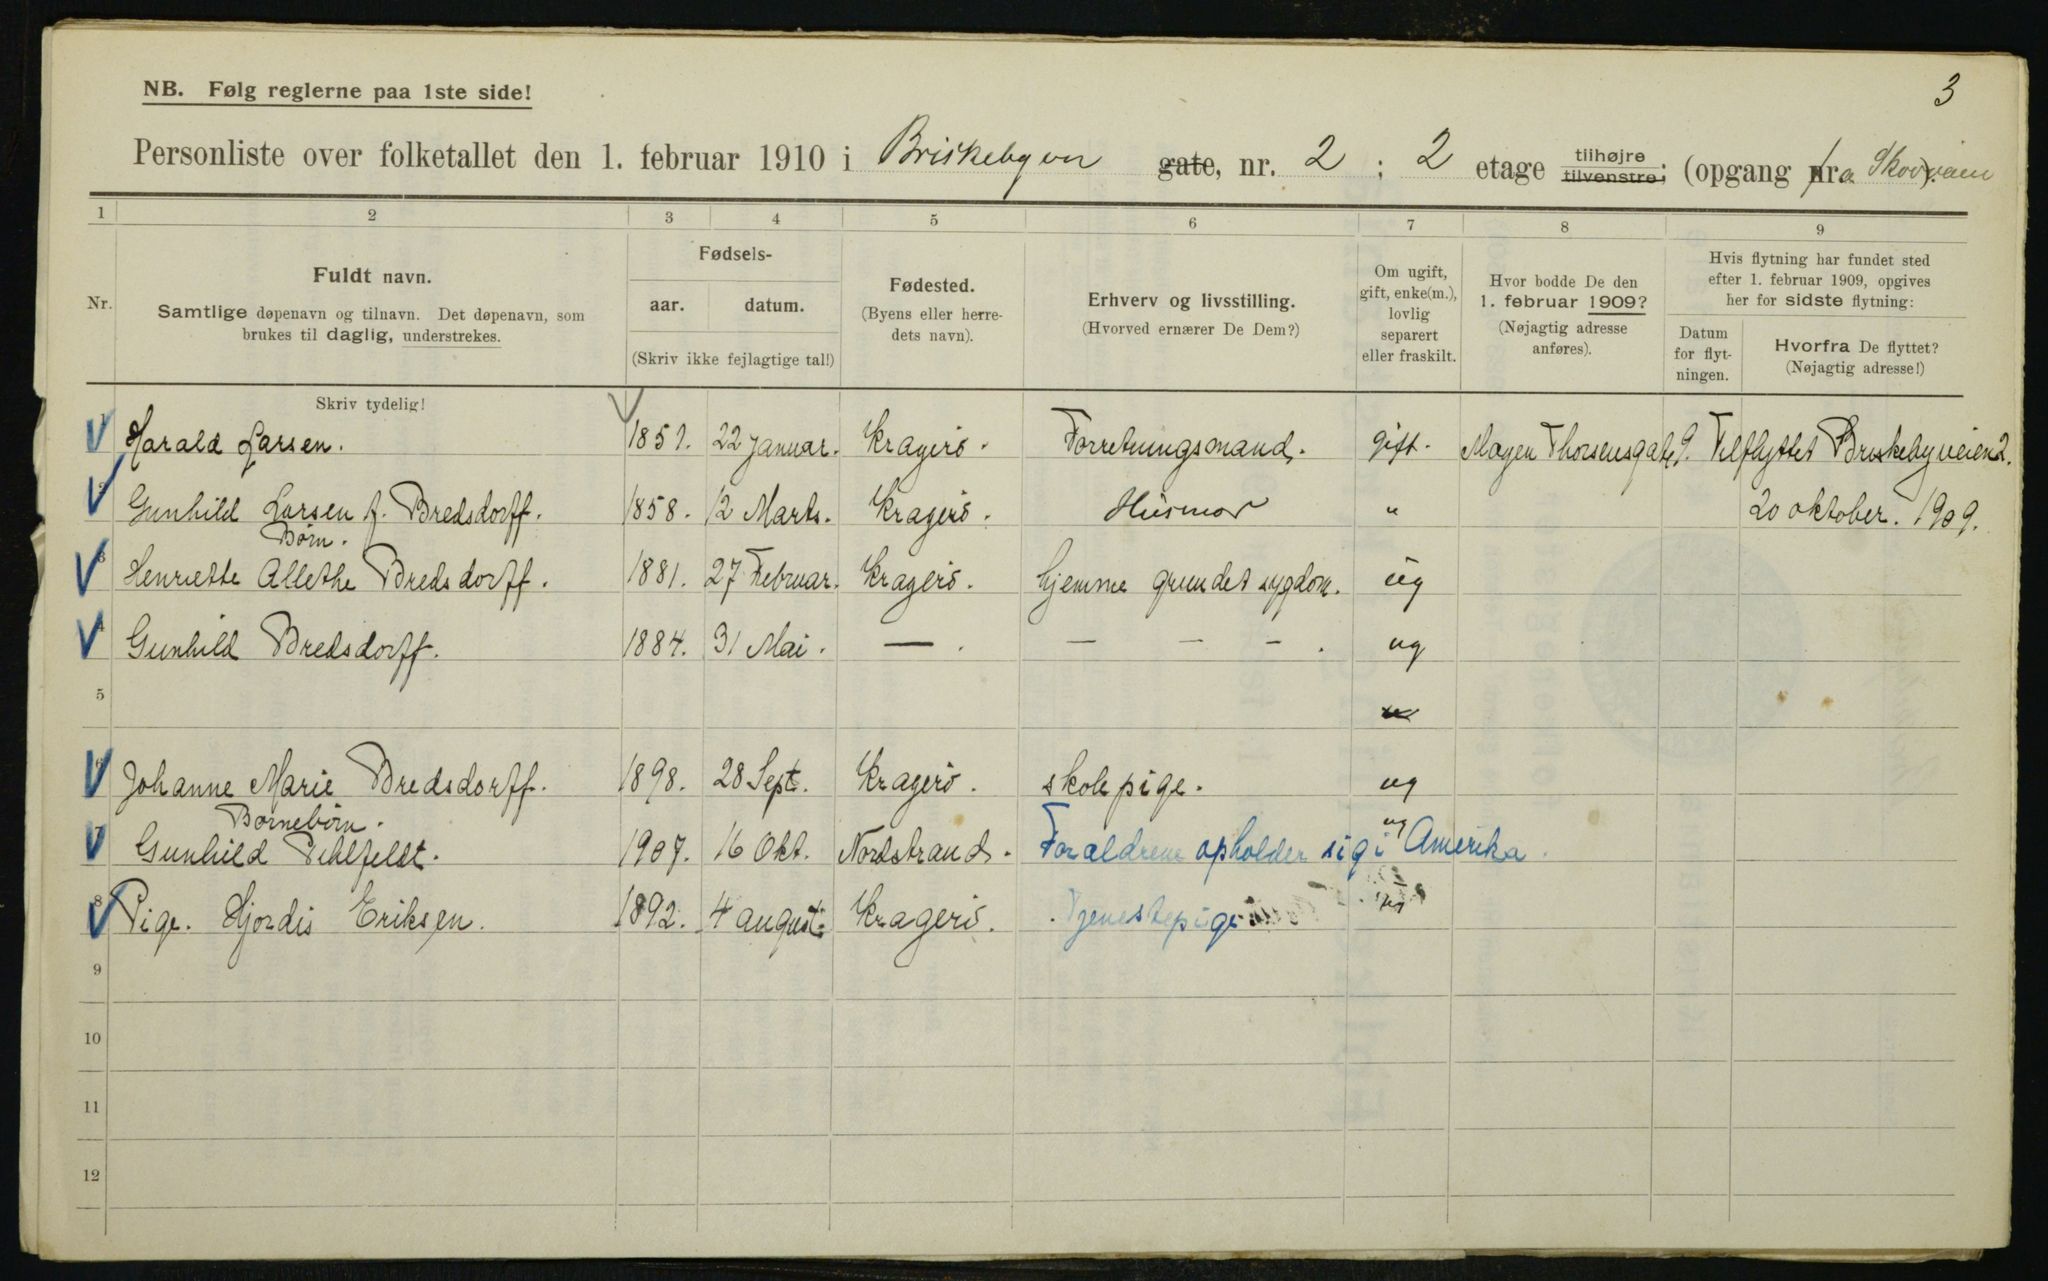 3
NB. Følg reglerne paa 1ste side!
Personliste over folketallet den 1. februar 1910 i Briskebyvn gate, nr. 2 ; 2 etage tilhøjre tilvenstre; (opgang fra Skovveien
1 2 3 4 5 6 7 8 9
Nr.
Fuldt navn.
Samtlige døpenavn og tilnavn. Det døpenavn, som
brukes til daglig, understrekes.
Fødsels-
aar. datum.
(Skriv ikke fejlagtige tal!)
Fødested.
(Byens eller herre-
dets navn).
Erhverv og livsstilling.
(Hvorved ernærer De Dem?)
Om ugift,
gift, enke(m.),
lovlig
separert
eller fraskilt.
Hvor bodde De den
1. februar 1909?
(Nøjagtig adresse
anføres).
Hvis flytning har fundet sted
efter 1. februar 1909, opgives
her for sidste flytning:
Datum
for flyt-
ningen.
Hvorfra De flyttet?
(Nøjagtig adresse!)
Skriv tydelig!
1 Harald Larsen. 1851. 22 Januar. Kragerö. Forretningsmand. gift. Mogen Thorsensgate 9. Tilflyttet Briskebyveien 2.
2 Gunhild Larsen f. Bredsdorff. 1858. 12 Marts. Kragerö. Husmor " 20 oktober. 1909.
Börn.
3 Henriette Allethe Bredsdorff. 1881. 27 Februar. Kragerö. hjemme grundet sygdom. ug
4 Gunhild Bredsdorff. 1884. 31 Mai. — . — — — . ug
5
6 Johanne Marie Bredsdorff. 1898. 28 Sept. Kragerö. skolepige. ug
Barnebörn.
7 Gunhild Pihlfeldt. 1907. 16 Okt. Nordstrand. Foraldrene opholder sig i Amerika. ug
8 Pige. Hjordis Eriksen. 1892. 4 august. Kragerö. Tjenestepige ug
9
10
11
12